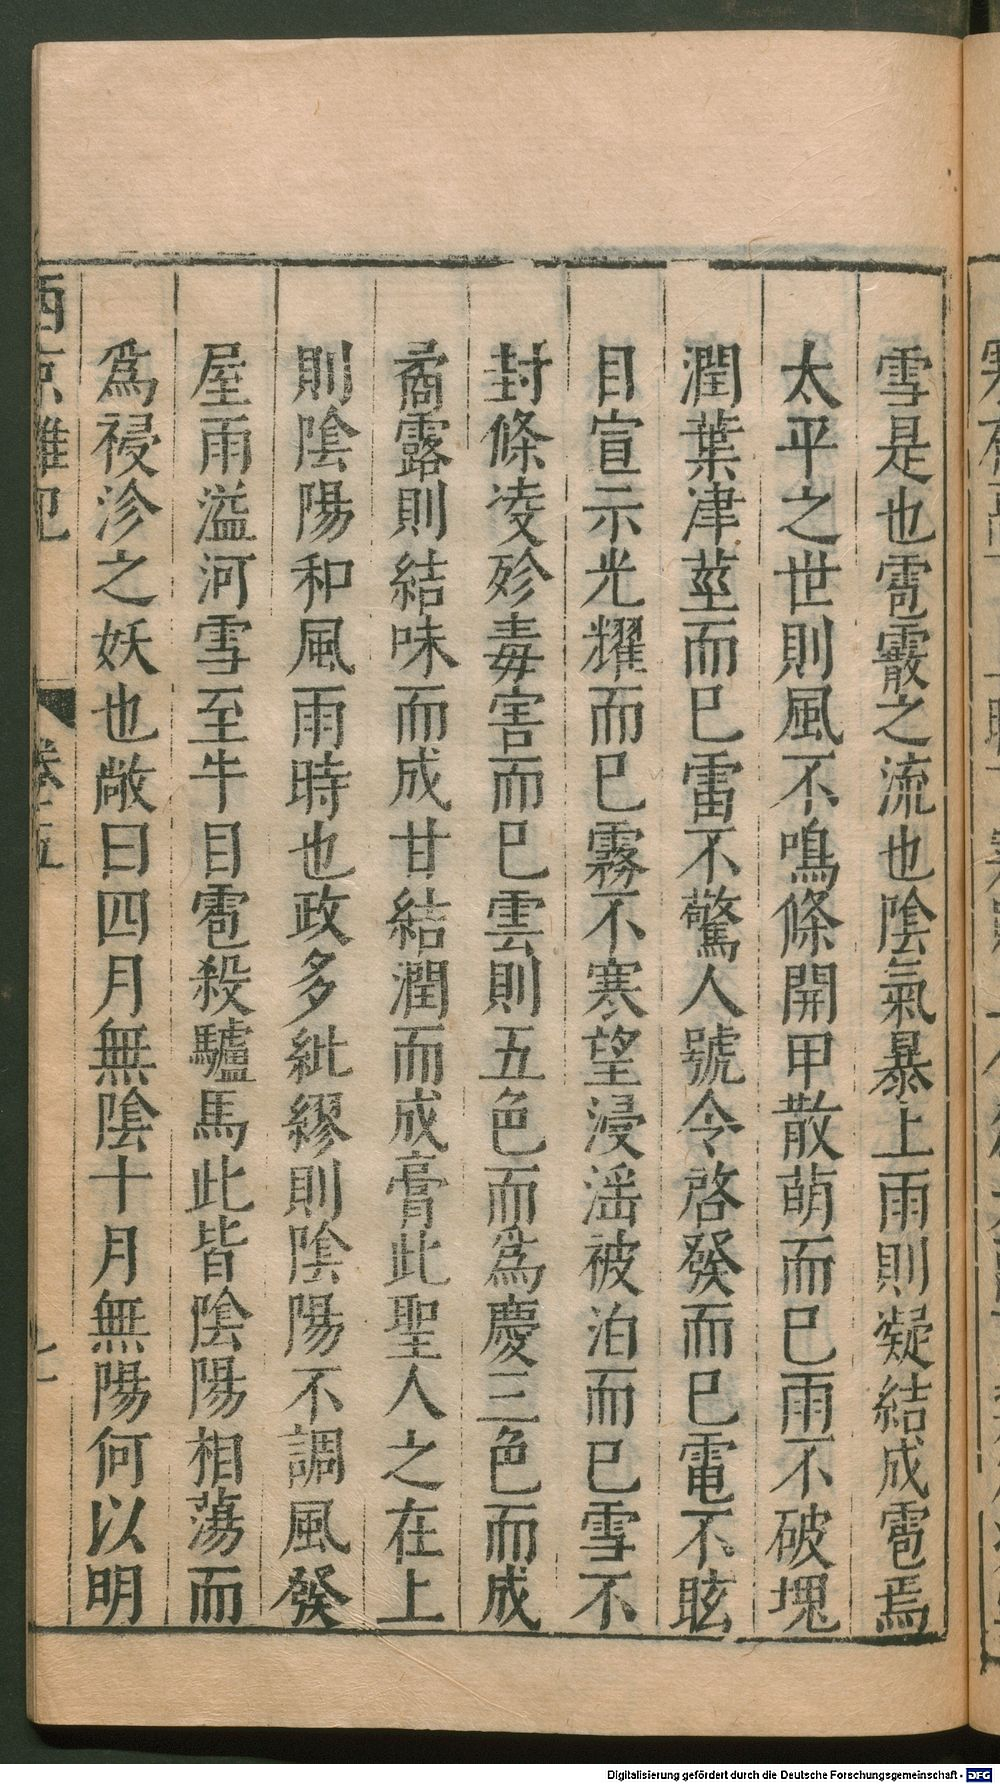 雪是也雹霰之流也陰氣暴上雨則凝結成雹焉
太平之世則風不鳴條開甲散萌而已雨不破塊
潤葉津莖而已雷不驚人號令啓發而已電不眩
目宣示光耀而已霧不寒望浸淫被泊而已雪不
封條凌殄毒害而已雲則五色而爲慶三色而成
矞露則結味而成甘結潤而成膏此聖人之在上
則陰陽和風雨時也政多紕繆則陰陽不調風發
屋雨溢河雪至牛目雹殺驢馬此皆陰陽相蕩而
爲祲沴之妖也敞曰四月無陰十月無陽何以明
西京雜記 卷五 七
Digitalisierung gefördert durch die Deutsche Forschungsgemeinschaft - DFG